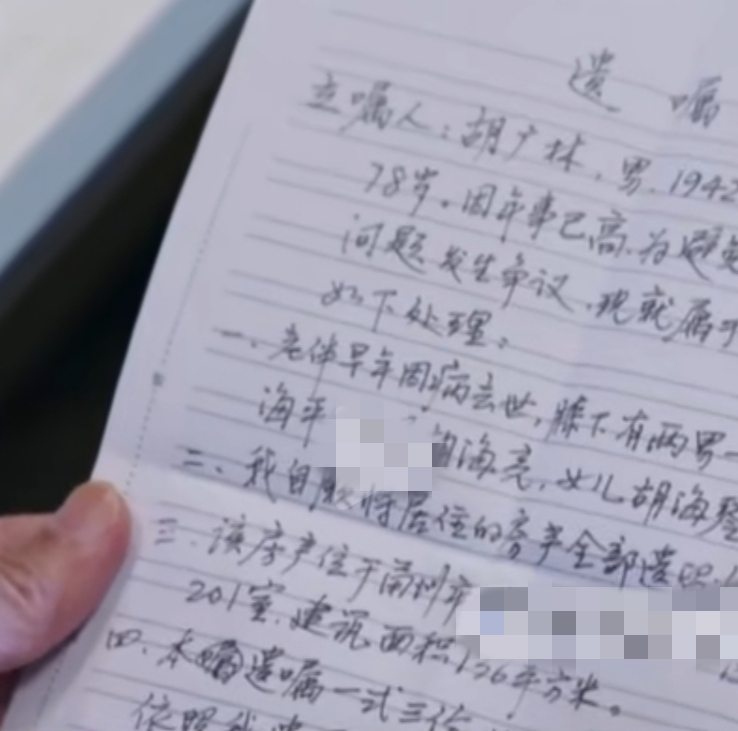 遗嘱
立嘱人：胡广林，男，1942
78岁。因年事已高，为避免
问题发生争议，我就属于
如下处理。
一、老伴早年因病去世，膝下有两男一
海平 胡海亮，女儿胡海
二、我自愿将居住的房产全部遗
三、该房产位于 州市
201室，建筑面积126平方米。
四、本 遗嘱一式三份
依照我